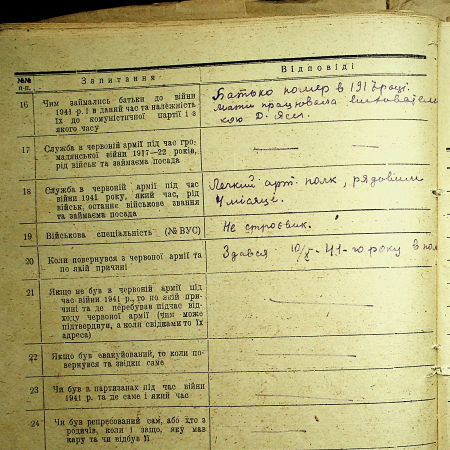 №№ п-п.
Запитання
Відповіді
16
Чим займались батьки до війни
1941 р. і в даний час та належність
їх до комуністичної партії і з
якого часу
Батько помер в 1917 році.
Мати працювала вихователь-
кою Д. Ясл.
17
Служба в червоній армії під час гро-
мадянської війни 1917—22 років,
рід військ та займаєма посада
18
Служба в червоній армії під час
війни 1941 року, який час, рід
військ, останнє військове звання
та займаєма посада
Легкий арт. полк, рядовим
4 місяці.
19
Військова спеціяльність (№ ВУС)
Не строєвик.
20
Коли повернувся з червоної армії та
по якій причині
Здався 10/X-41-го року в пол
21
Якщо не був в червоній армії під
час війни 1941 р., то по якій при-
чині та де перебував підчас від-
ходу червоної армії (чим може
підтвердити, а коли свідками то їх
адреса)
22
Якщо був евакуйований, то коли по-
вернувся та звідки саме
23
Чи був в партизанах під час війни
1941 р. та де саме і який час
24
Чи був репресований сам, або хто з
родичів, коли і защо, яку мав
кару та чи відбув її